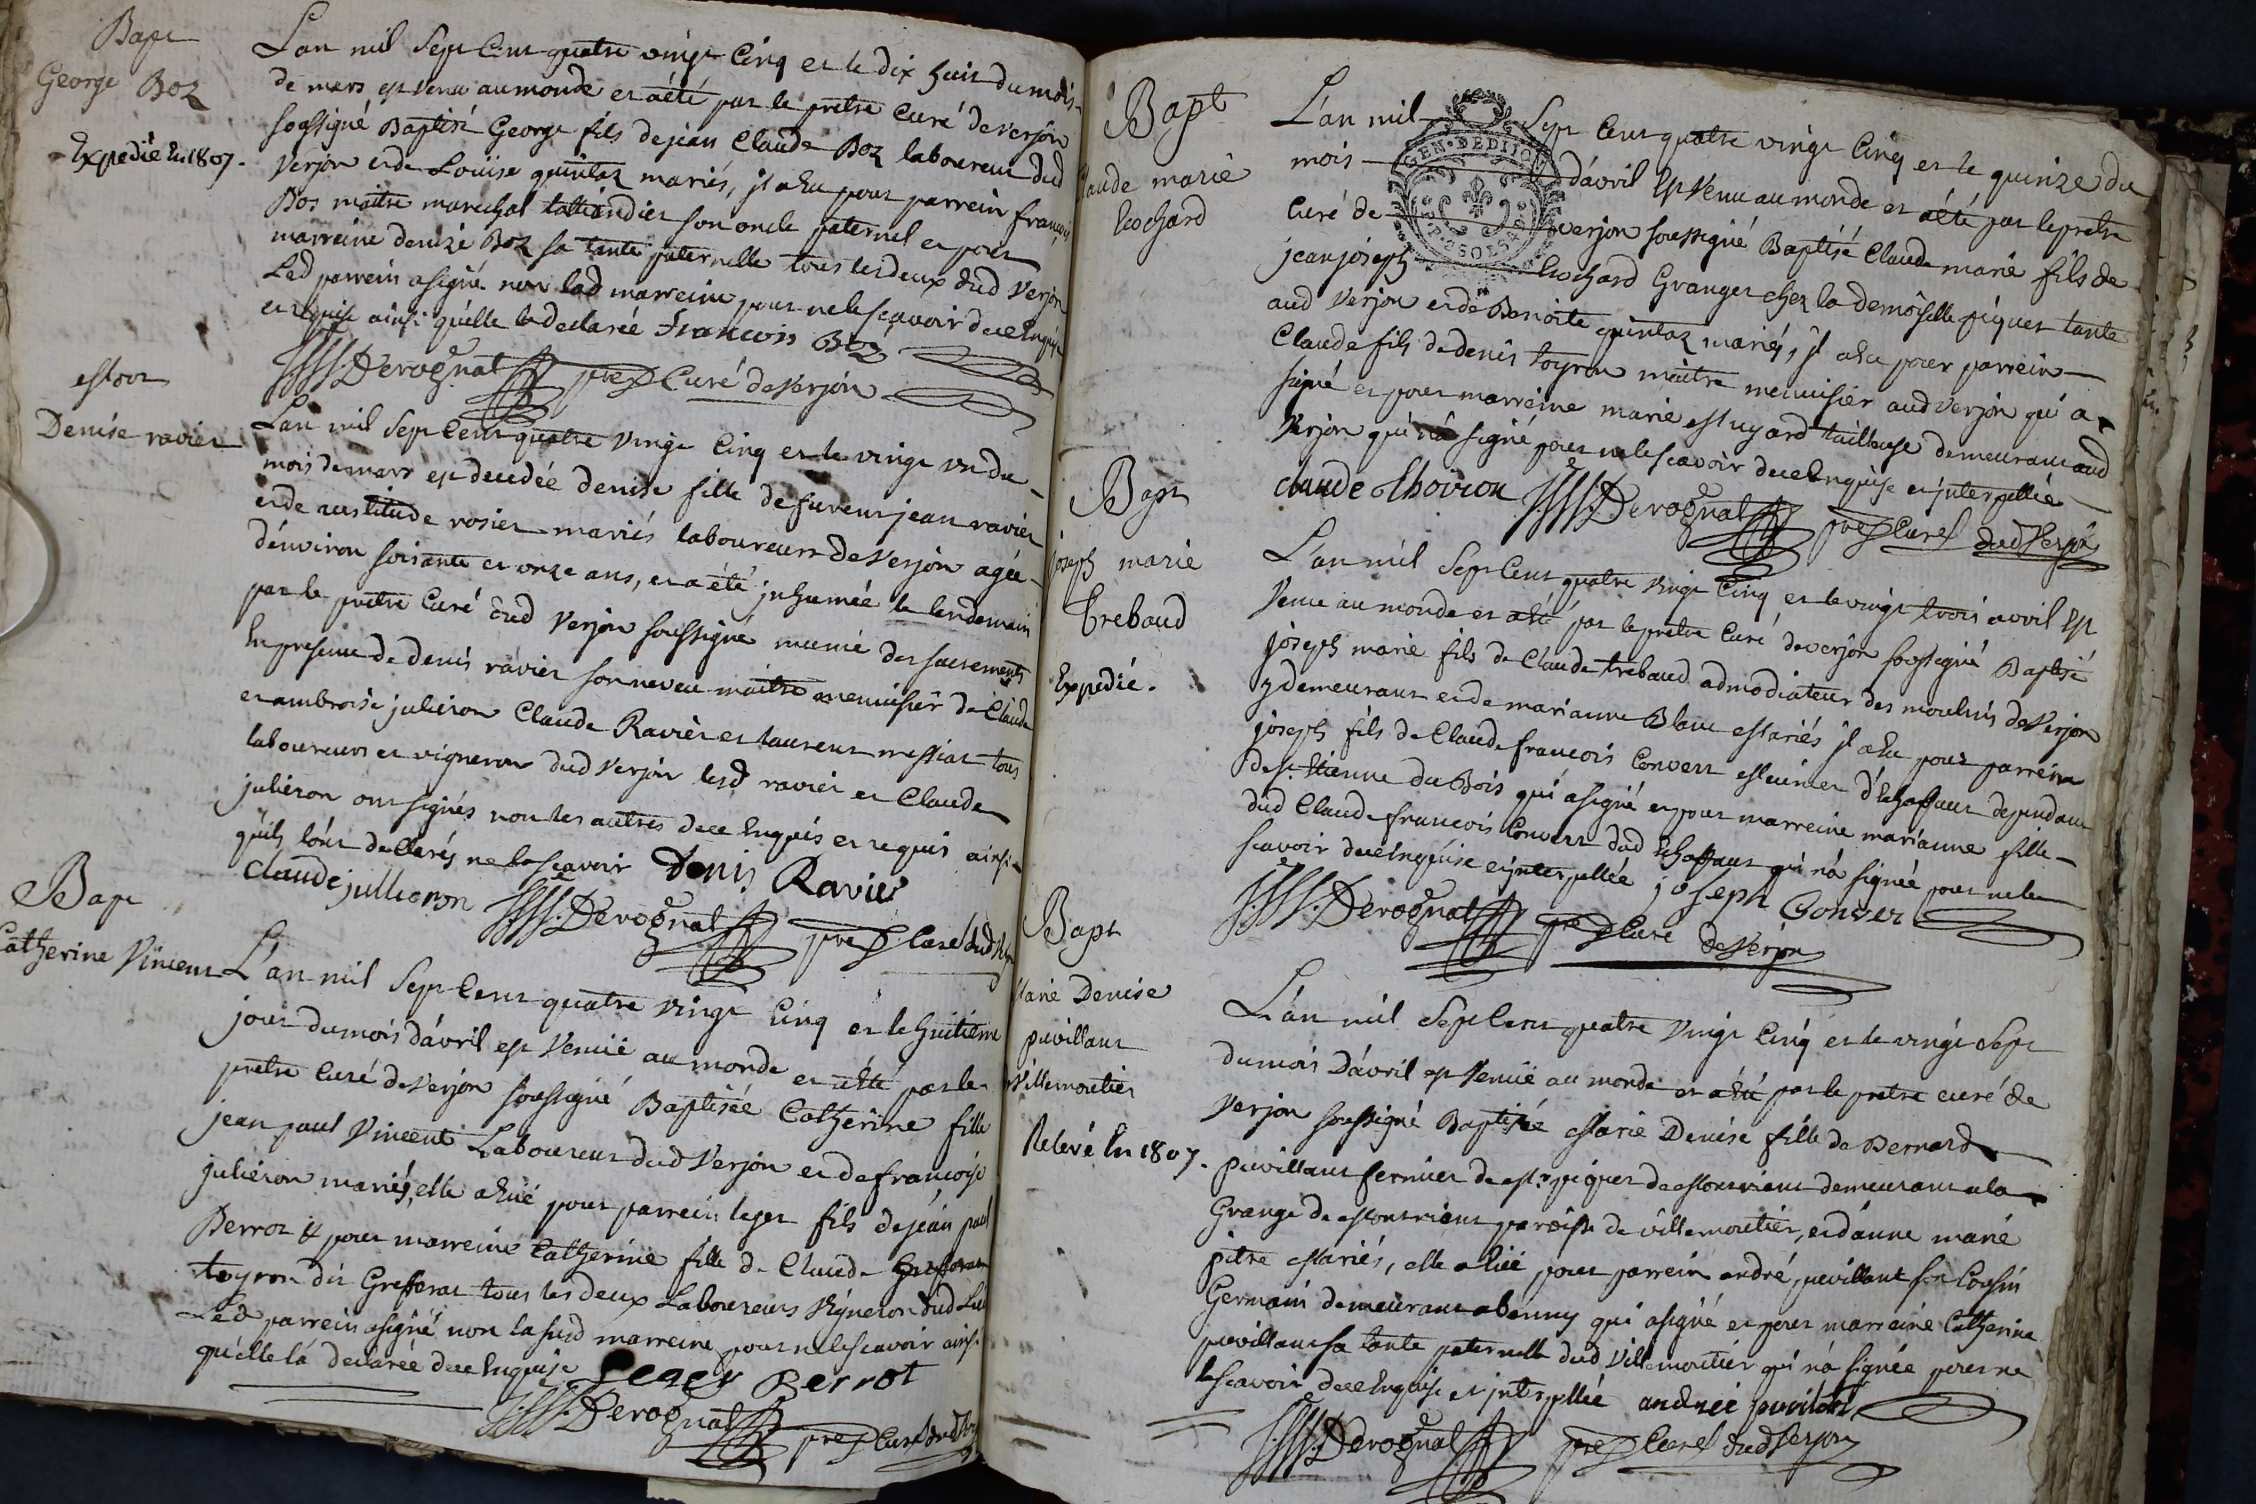 Bapt
George Boz
Expedié En 1807.
L'an mil Sept Cent quatre vingt Cinq et le dix huit du mois
de mars est venu au monde et a été par le prêtre Curé de Verjon
soussigné Baptisé George fils de jean Claude Boz laboureur dud
Verjon et de Louise quintaz mariés, jl a hu pour parrein françois
Bos maitre marechal taillandier son oncle paternel et pour
marreine denize Boz sa tante paternelle tous les deux dud Verjon
Led parrein a signé non lad marreine pour ne le scavoir de ce Enquise
et requise ainsi quelle la declarée francois Boz
Derognat pre Curé de Verjon
Mort
Denise ravier
L'an mil Sept Cent quatre vingt Cinq et le vingt un du
mois de mars est decedée denise fille de fu reur jean ravier
et de rosier mariés laboureurs de Verjon agée
d'environ soixante et onze ans, et a été jnhumée le lendemain
par le prêtre Curé dud Verjon soussigné munie des sacrements
En presence de denis ravier son neveu maitre menuisier de Claude
et ambroise julieron Claude Ravier et laurent messiat tous
laboureurs et vigneron dud Verjon lesd ravier et Claude
julieron ont signés non les autres de ce Enquis et requis ainsi
quils l'ont declarés ne le scavoir Denis Ravier
Claude jullieron Derognat pre Curé dud Verjon
Bapt
Catherine Vincent
L'an mil Sept Cent quatre vingt Cinq et le huitieme
jour du mois d'avril est Venuë au monde et a été par le
prêtre Curé de Verjon soussigné Baptisée Catherine fille
jean paul Vincent Laboureur dud Verjon et de françoise
julieron mariés, elle a huë pour parrein leger fils de jean paul
Perrot & pour marreine Catherine fille de Claude
toyron dit Grefferat tous les deux Laboureurs Vigneron dud Lieu
Led parrein a signé non la susd marreine pour ne le scavoir ainsi
quelle la declarée de ce Enquise Leger Perrot
Derognat pre Curé dud Verjon
Bapt
Claude marie
Brochard
L'an mil Sept Cent quatre vingt Cinq et le quinze du
mois d'avril Est Venu au monde et a été par le prêtre
Curé de Verjon soussigné Baptisé Claude marie fils de
jean joseph Brochard Granger chez la demoiselle piquet tante
aud Verjon et de Benoite quintaz mariés, jl a hu pour parrein
Claude fils de denis toyron maitre menuisier aud Verjon qui a
signé et pour marreine marie Mugard tailleuse demeurant aud
Verjon qui n'a signé pour ne le scavoir de ce Enquise et jnterpellée
claude thoiron Derognat pre Curé dud Verjon
GEN. DE DIJON
Bapt
joseph marie
Trebaud
Expedié.
L'an mil Sept Cent quatre vingt Cinq et le vingt trois avril Est
Venu au monde et a été par le prêtre Curé de Verjon soussigné Baptisé
joseph marie fils de Claude trebaud admodiateur des moulins de Verjon
y demeurant et de marianne Blanc Mariés jl a hu pour parrein
joseph fils de Claude francois Convert Meunier d'Echaffaut dependant
de St. Etienne du Bois qui a signé et pour marreine marianne fille
dud Claude francois Convert dud Echaffaut qui n'a signée pour ne le
scavoir de ce Enquise et jnterpellée joseph Conver
Derognat pre Curé de Verjon
Bapt
Marie Denise
puvillant
Villemoutier
Relevé En 1807.
L'an mil Sept Cent quatre vingt Cinq et le vingt Sept
du mois D'avril est Venuë au monde et a été par le prêtre curé de
Verjon soussigné Baptisée Marie Denise fille de Bernard
puvillant fermier de Mr. piquet de Montrient demeurant a la
Grange de Montrient paroisse de villemoutier, et d'anne marie
pitre Mariés, elle a huë pour parrein andré puvillant son Cousin
Germain demeurant a benny qui a signé et pour marreine Catherine
puvillant sa tante paternelle dud Villemoutier qui n'a signée pour ne
le scavoir de ce Enquise et jnterpellée andrée puvilant
Derognat pre Curé dud Verjon